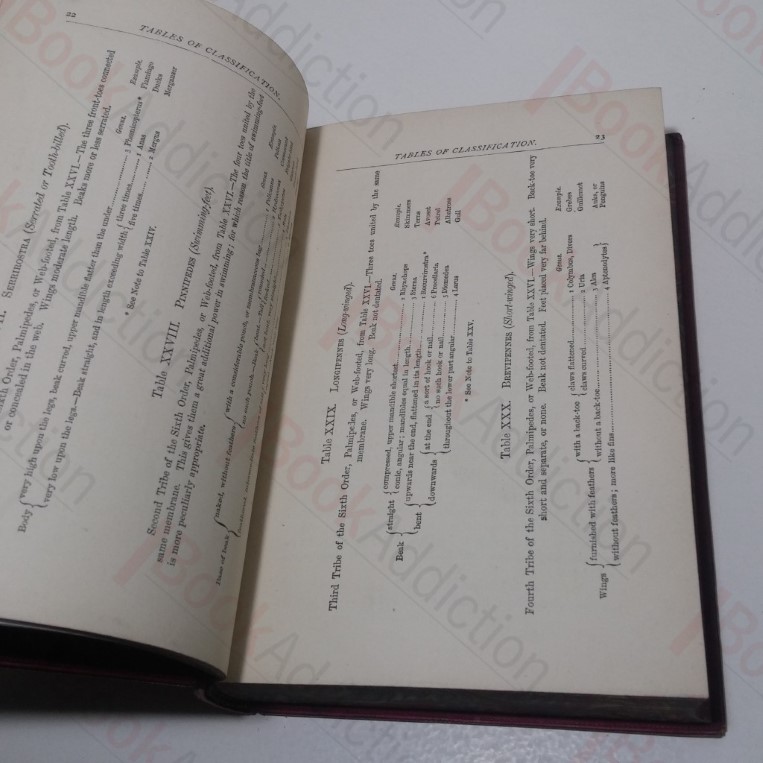 22
TABLES OF CLASSIFICATION.
SERRIROSTRA (Serrated or Tooth-billed).
Sixth Order, Palmipedes, or Web-footed, from Table XXVI.—The three front-toes connected
or concealed in the web. Wings moderate length. Beaks more or less serrated.
Genus. Example.
Body { very high upon the legs, beak curved, upper mandible better than the under 3 Phœnicopterus* Flamingo
{ very low upon the legs.—Beak straight, and in length exceeding width { three times 1 Anas Ducks
{ five times 2 Mergus Merganser
* See Note to Table XXIV.
Table XXVIII. PINNIPEDES (Swimming-feet).
Second Tribe of the Sixth Order, Palmipedes, or Web-footed, from Table XXVI.—The four toes united by the
same membrane. This gives them a great additional power in swimming; for which reason the title of swimming-feet
is more peculiarly appropriate.
Genus Example.
Base of beak { naked, without feathers { with a considerable pouch, or membranaceous bag
TABLES OF CLASSIFICATION.
23
Table XXIX. LONGIPENNES (Long-winged).
Third Tribe of the Sixth Order, Palmipedes, or Web-footed, from Table XXVI.—Three toes united by the same
membrane. Wings very long. Beak not dentated.
Genus. Example.
Beak { straight { compressed, upper mandible shortest 1 Skimmers
{ conic, angular; mandibles equal in length 3 Sterna Terns
{ bent { upwards near the end, flattened in its length 5 Recurvirostra* Avoset
{ downwards { at the end { a sort of hook or nail 6 Petrel
{ no such hook or nail Albatross
{ throughout the lower part angular 4 Larus Gull
* See Note to Table XXV.
Table XXX. BREVIPENNES (Short-winged).
Fourth Tribe of the Sixth Order, Palmipedes, or Web-footed, from Table XXVI.—Wings very short. Back-toe very
short and separate, or none. Beak not dentated. Feet placed very far behind.
Genus. Example.
Wings { furnished with feathers { with a back-toe { claws flattened 1 Colymbus, Divers Grebes
{ claws curved 2 Uria Guillemot
{ without a back-toe 3 Alca } Auks, or
{ without feathers; more like fins 4 Aptenodytes } Penguins